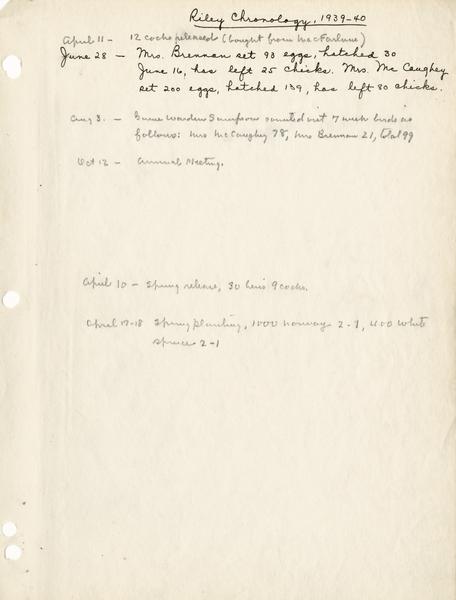 Riley Chronology, 1939-40
April 11 - 12 cocks released (bought from MacFarlane)
June 28 - Mrs. Brennan set 93 eggs, hatched 30
June 16, has left 25 chicks. Mrs. McCaughey
set 200 eggs, hatched 139, has left 80 chicks.
Aug 3. - Game Warden Sampson counted out 7 week birds as
follows: Mrs McCaughey 78, Mrs Brennan 21, total 99
Oct 12 - Annual Meeting.
April 10 - Spring release, 30 hens 9 cocks.
April 17-18 Spring planting, 1000 norway 2-1, 400 White
spruce 2-1